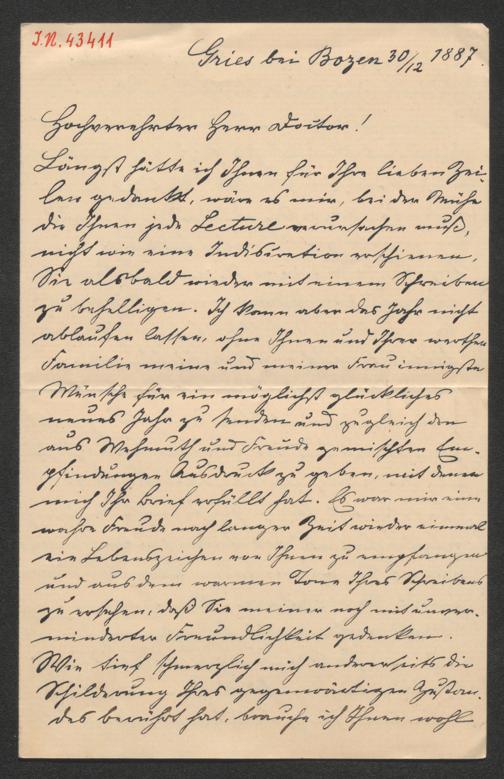 I.N. 43411
Gries bei Bozen 30/12 1887.
Hochverehrter Herr Doctor!
Längst hätte ich Ihnen für Ihre lieben Zei-
len gedankt, wäre es mir, bei der Mühe
die Ihnen jede Lecture verursachen muß,
nicht wie eine Indiscretion erschienen,
Sie alsbald wieder mit einem Schreiben
zu behelligen. Ich kann aber das Jahr nicht
ablaufen lassen, ohne Ihnen und Ihrer werthen
Familie meine und meiner Frau innigste
Wünsche für ein möglichst glückliches
neues Jahr zu senden und zugleich den
aus Wehmuth und Freude gemischten Em-
pfindungen Ausdruck zu geben, mit denen
mich Ihr Brief erfüllt hat. Es war mir eine
wahre Freude nach langer Zeit wieder einmal
ein Lebenszeichen von Ihnen zu empfangen
und aus dem warmen Tone Ihres Schreibens
zu ersehen, daß Sie meiner noch mit unver-
minderter Freundlichkeit gedenken.
Wie tief schmerzlich mich andererseits die
Schilderung Ihres gegenwärtigen Zustan-
des berührt hat, brauche ich Ihnen wohl